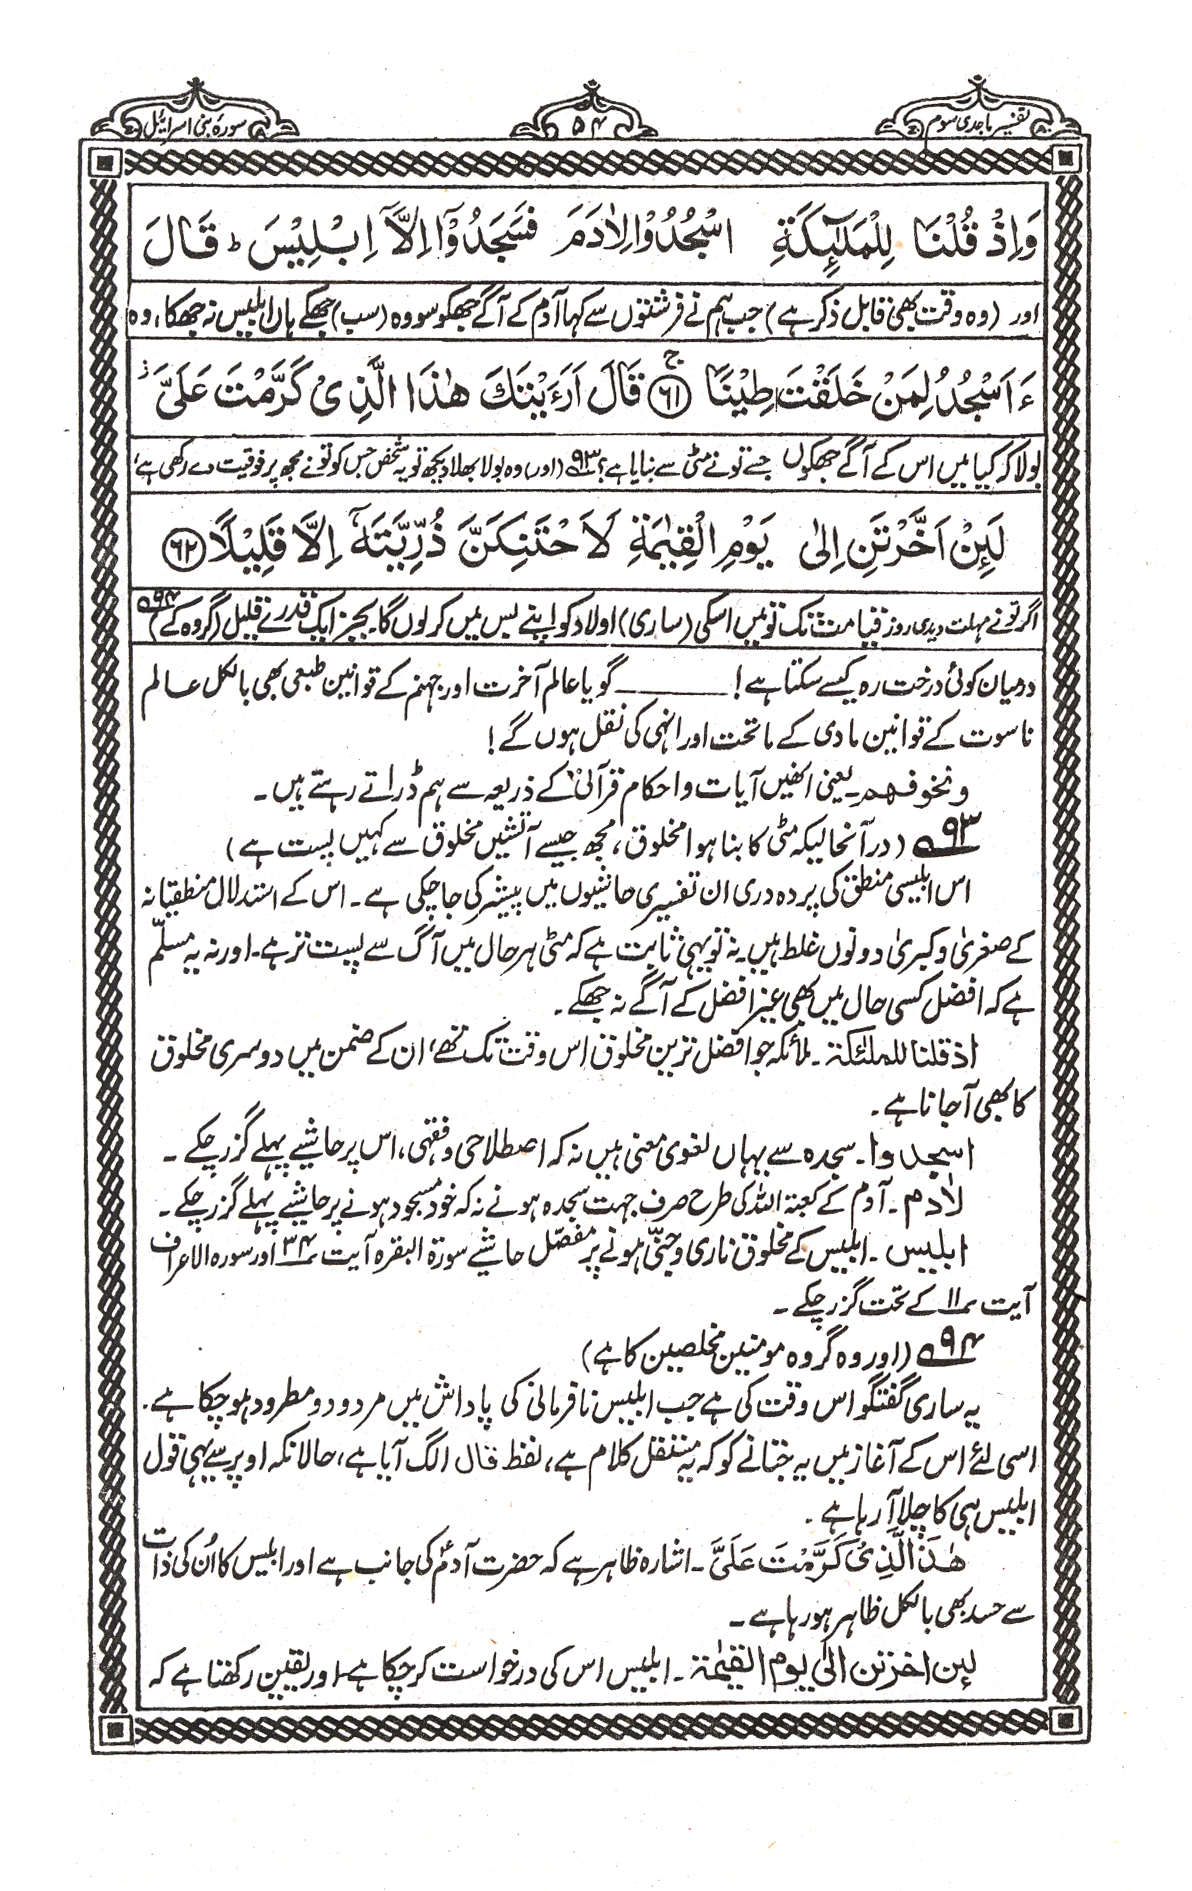 تفسیر ماجدی سوم
۵۴
سورۂ بنی اسرائیل
وَاِذْ قُلْنَا لِلْمَلٰٓئِكَةِ اسْجُدُوْا لِاٰدَمَ فَسَجَدُوْٓا اِلَّآ اِبْلِيْسَ ؕ قَالَ
اور (وہ وقت بھی قابل ذکر ہے) جب ہم نے فرشتوں سے کہا آدم کے آگے جھکو سو وہ (سب) جھکے ہاں ابلیس نہ جھکا، وہ
ءَاَسْجُدُ لِمَنْ خَلَقْتَ طِيْنًا ۚ ﴿۶۱﴾ قَالَ اَرَءَيْتَكَ هٰذَا الَّذِيْ كَرَّمْتَ عَلَيَّ ؗ
بولا کہ کیا میں اس کے آگے جھکوں جسے تو نے مٹی سے بنایا ہے؟ ۹۳ (اور) وہ بولا بھلا دیکھ تو یہ شخص جس کو تو نے مجھ پر فوقیت دے رکھی ہے،
لَئِنْ اَخَّرْتَنِ اِلٰى يَوْمِ الْقِيٰمَةِ لَاَحْتَنِكَنَّ ذُرِّيَّتَهٗٓ اِلَّا قَلِيْلًا ﴿۶۲﴾
اگر تو نے مہلت دیدی روز قیامت تک تو میں اسکی (ساری) اولاد کو اپنے بس میں کر لوں گا۔ بجز ایک قدرے قلیل (گروہ کے) ۹۴
درمیان کوئی درخت رہ کیسے سکتا ہے! ــــــــ گویا عالم آخرت اور جہنم کے قوانین طبعی بھی بالکل عالم
ناسوت کے قوانین مادی کے ماتحت اور انہی کی نقل ہوں گے!
ونخوفهم۔ یعنی انھیں آیات و احکام قرآنی کے ذریعہ سے ہم ڈراتے رہتے ہیں۔
۹۳ (درآنحالیکہ مٹی کا بنا ہوا مخلوق، مجھ جیسے آتشیں مخلوق سے کہیں پست ہے)
اس ابلیسی منطق کی پردہ دری ان تفسیری حاشیوں میں پیشتر کی جا چکی ہے۔ اس کے استدلال منطقیانہ
کے صغریٰ و کبریٰ دونوں غلط ہیں۔ نہ تو یہی ثابت ہے کہ مٹی ہر حال میں آگ سے پست تر ہے۔ اور نہ یہ مسلّم
ہے کہ افضل کسی حال میں بھی غیر افضل کے آگے نہ جھکے۔
اذ قلنا للملٰئکة۔ ملائکہ جو افضل ترین مخلوق اس وقت تک تھے، ان کے ضمن میں دوسری مخلوق
کا بھی آ جانا ہے۔
اسجدوا۔ سجدہ سے یہاں لغوی معنی ہیں نہ کہ اصطلاحی و فقہی، اس پر حاشیے پہلے گزر چکے۔
لاٰدم۔ آدم کے کعبۃ اللہ کی طرح صرف جہت سجدہ ہونے نہ کہ خود مسجود ہونے پر حاشیے پہلے گزر چکے۔
ابلیس۔ ابلیس کے مخلوق ناری و جنّی ہونے پر مفصّل حاشیے سورۃ البقرہ آیت ۳۴ اور سورہ الاعراف
آیت ۱۱ کے تحت گزر چکے۔
۹۴ (اور وہ گروہ مومنین مخلصین کا ہے)
یہ ساری گفتگو اس وقت کی ہے جب ابلیس نافرمانی کی پاداش میں مردود و مطرود ہو چکا ہے۔
اسی لئے اس کے آغاز میں یہ جتانے کو کہ یہ مستقل کلام ہے، لفظ قال الگ آیا ہے، حالانکہ اوپر سے یہی قول
ابلیس ہی کا چلا آ رہا ہے۔
هٰذَا الَّذِيْ كَرَّمْتَ عَلَيَّ۔ اشارہ ظاہر ہے کہ حضرت آدمؑ کی جانب ہے اور ابلیس کا اُن کی ذات
سے حسد بھی بالکل ظاہر ہو رہا ہے۔
لئن اخرتن الیٰ یوم القیٰمة۔ ابلیس اس کی درخواست کر چکا ہے۔ اور یقین رکھتا ہے کہ